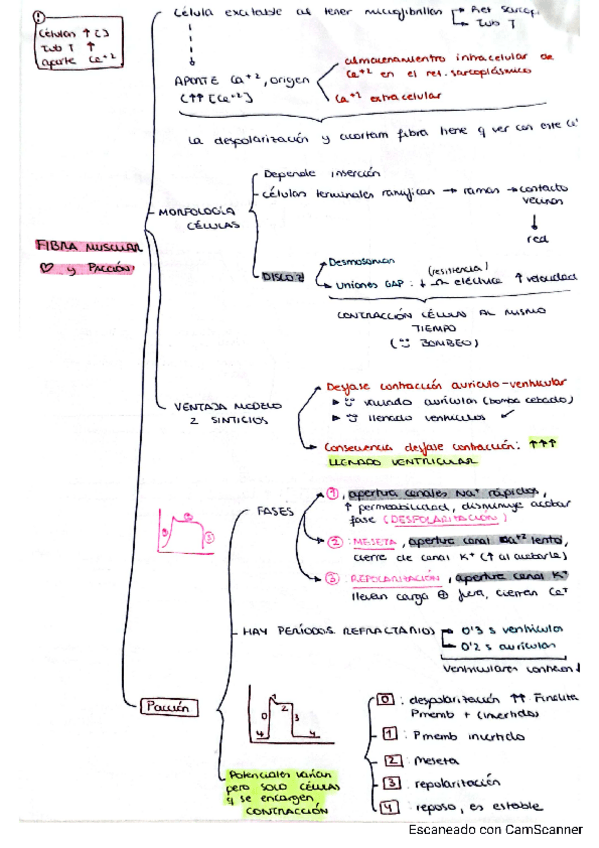 Células ↑ [ ]
Tub T ↑
aporte Ca+2
Célula excitable al tener microfibrillas → Ret sarcop.
Tub T
APORTE Ca+2, origen
(↑↑ [Ca+2]
almacenamiento intracelular de
Ca+2 en el ret. sarcoplásmico
Ca+2 extracelular
La despolarización y acortam fibra tiene q ver con este Ca
FIBRA MUSCULAR
♡ y PACCIÓN
MORFOLOGÍA
CÉLULAS
Depende inserción
células terminales ramifican → ramas → contacto
vecinas
↓
red
DISCO
Desmosomas
Uniones GAP : ↓ (resistencia) eléctrica ↑ velocidad
CONTRACCIÓN CÉLULAS AL MISMO
TIEMPO
( BOMBEO)
VENTAJA MODELO
2 SINTICIOS
Desfase contracción auriculo-ventricular
► vaciado aurículas (bomba cebado)
► llenado ventrículos ✓
Consecuencia desfase contracción: ↑↑↑
LLENADO VENTRICULAR
FASES
①, apertura canales Na+ rápidos,
↑ permeabilidad, disminuye acabar
fase (DESPOLARIZACIÓN)
② : MESETA, apertura canal Ca+2 lento,
cierre de canal K+ (↑ al acabarla)
③ : REPOLARIZACIÓN, apertura canal K+
llevan carga ⊕ fuera, cierran Ca+
HAY PERÍODOS REFRACTARIOS → 0'3 s ventrículos
→ 0'2 s aurículas
Ventriculares
Pacción
0 1 2 3 4 4
Potenciales varían
pero SOLO CÉLULAS
q se encargan
CONTRACCIÓN
0 : despolarización ↑↑ Finaliza
Pmemb + (invertido)
1 : Pmemb invertido
2 : meseta
3 : repolarización
4 : reposo, es estable
Escaneado con CamScanner